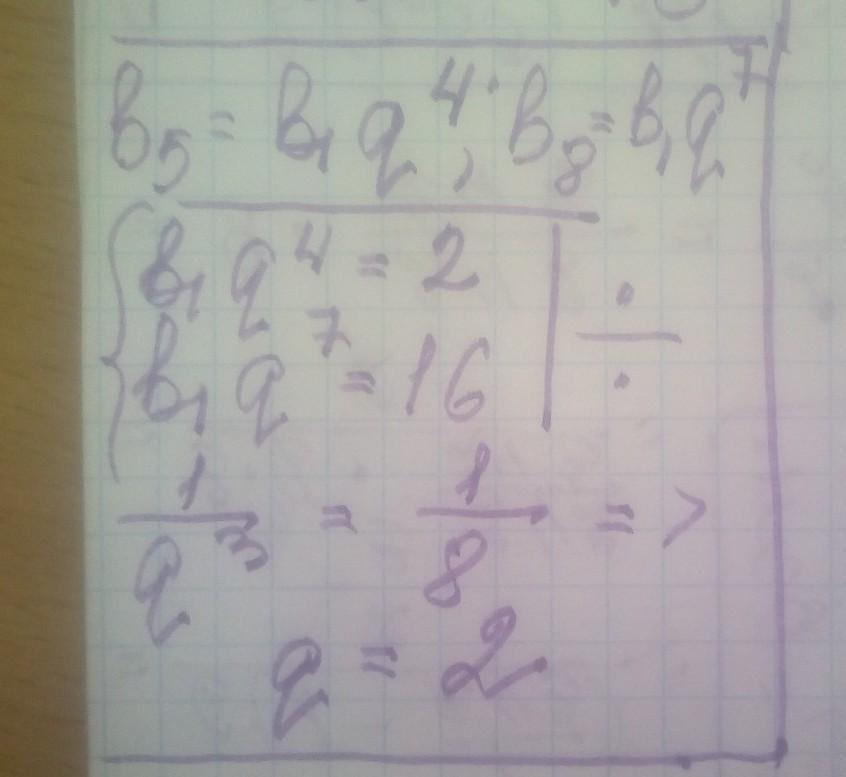 b₅ = b₁ q⁴, b₈ = b₁ q⁷
{ b₁ q⁴ = 2 | ÷
b₁ q⁷ = 16
1/q³ = 1/8 =>
q = 2